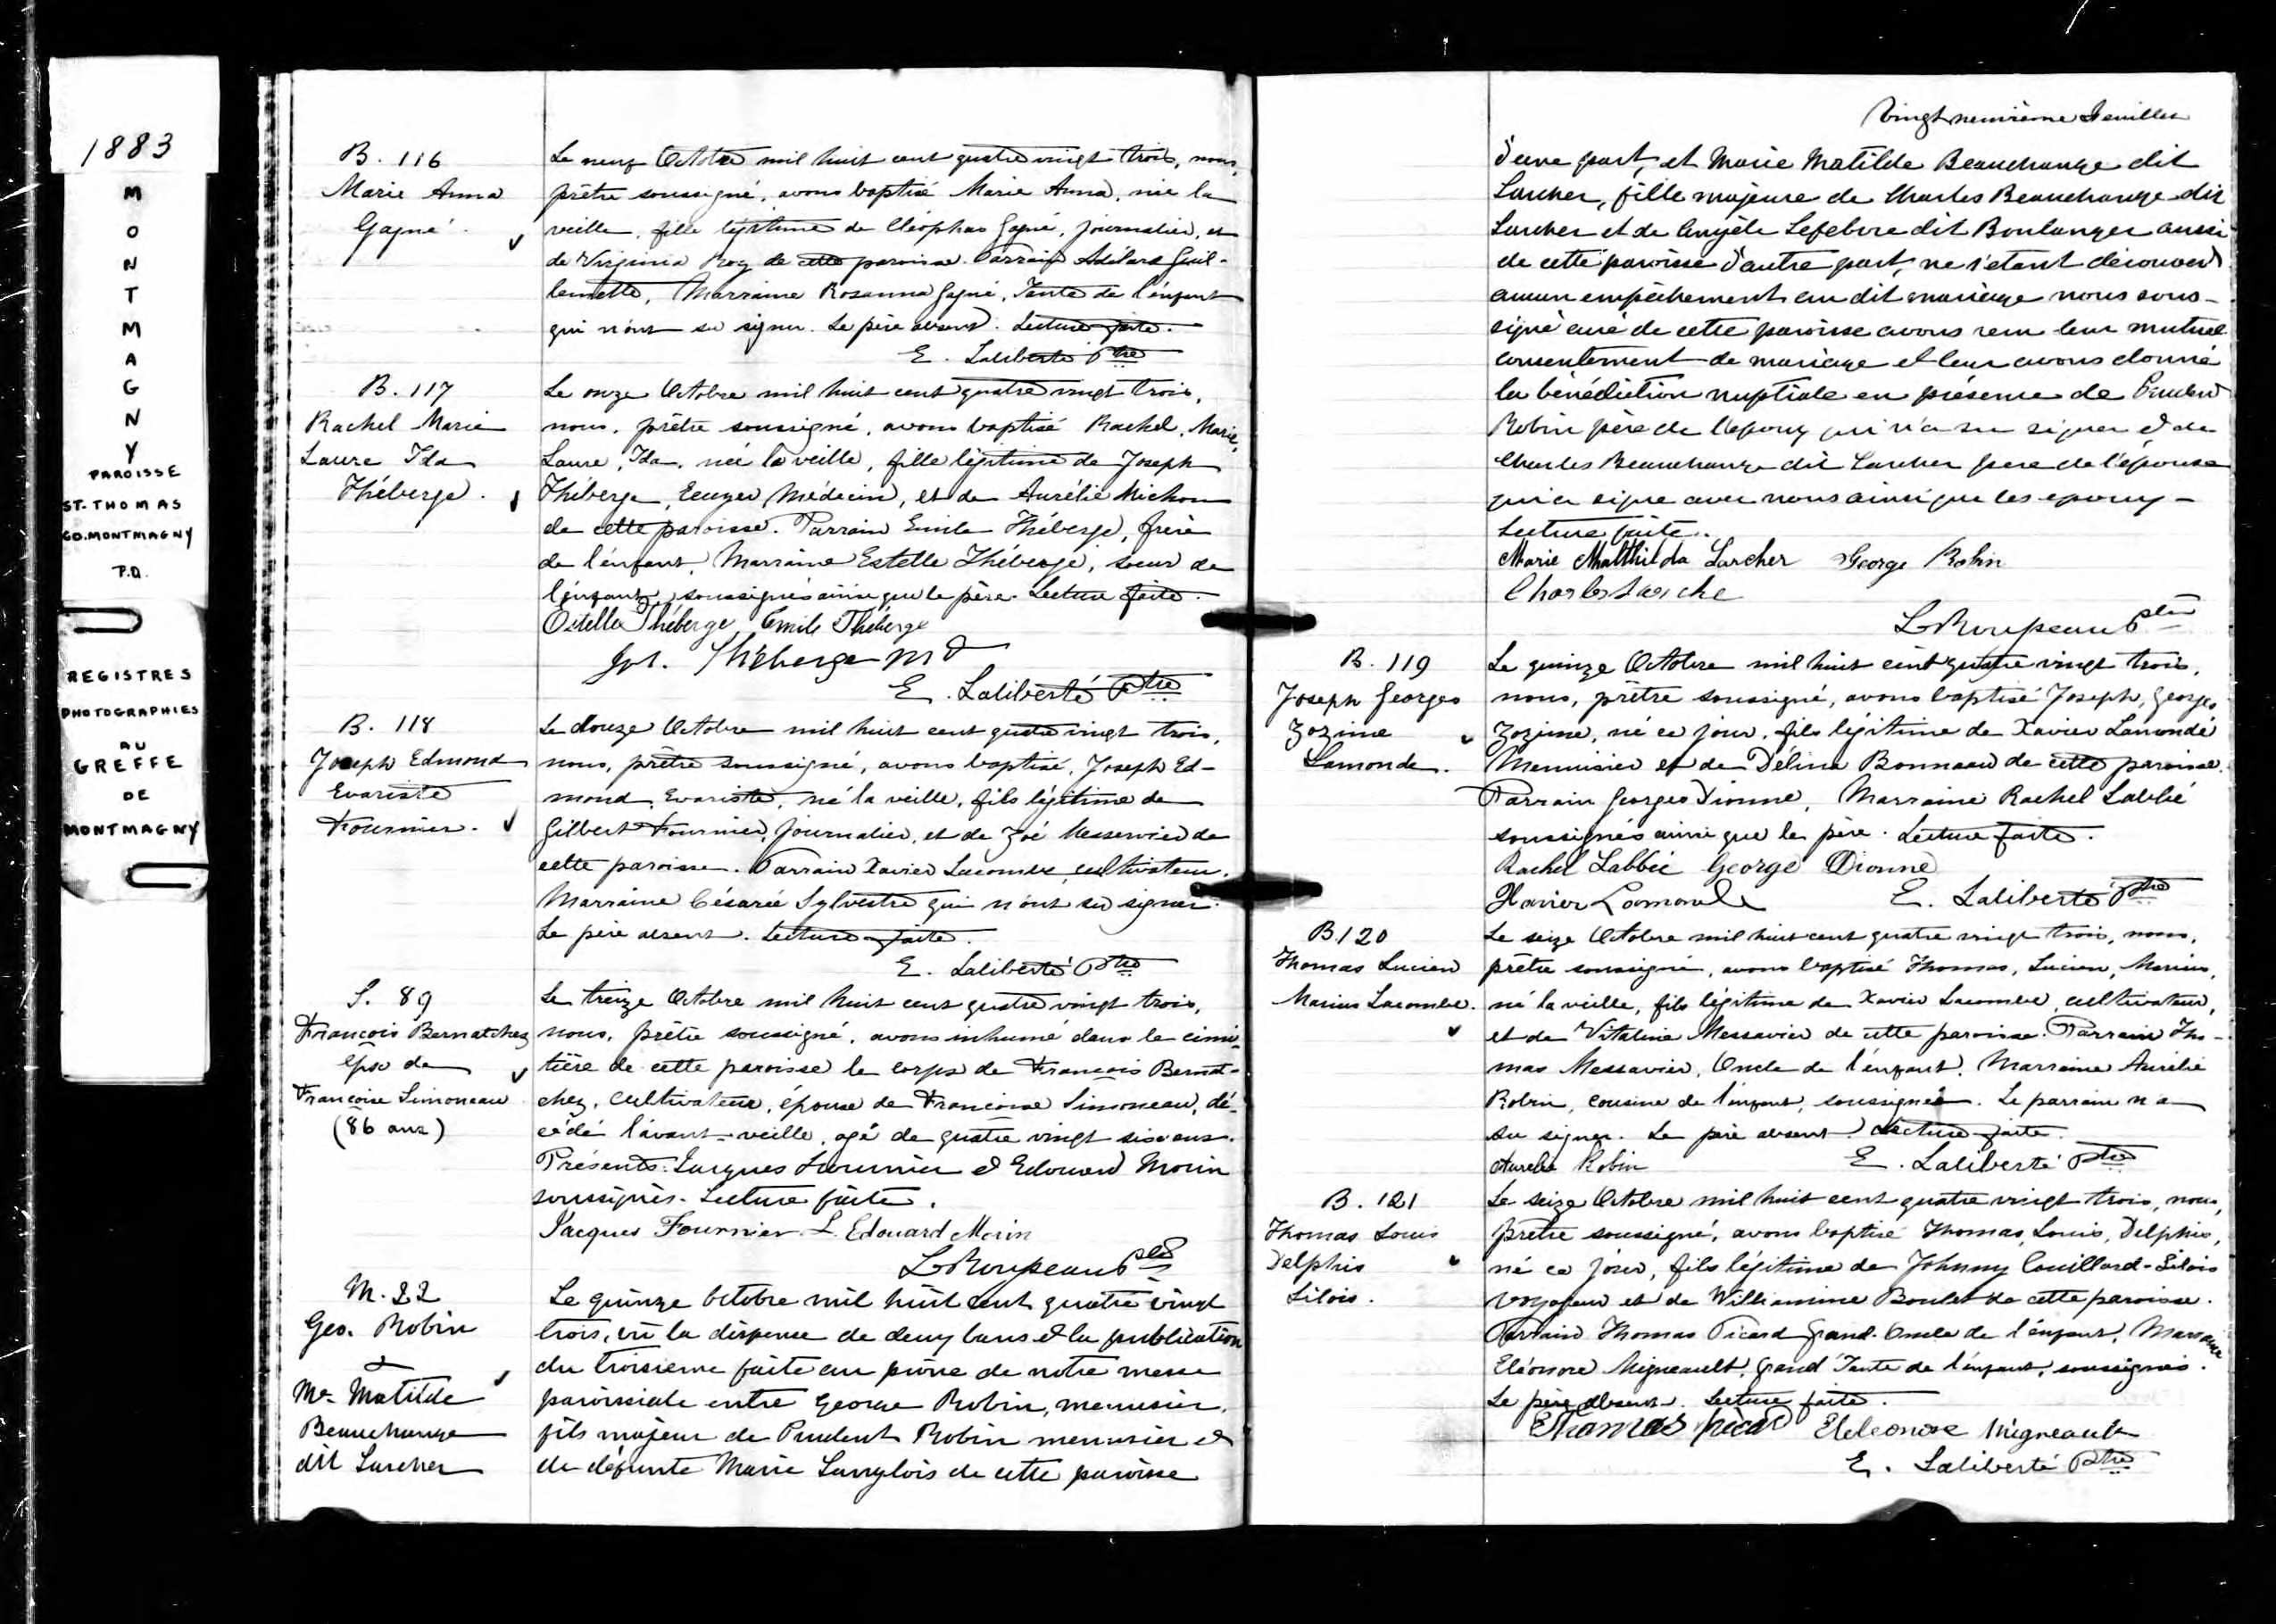 1883
MONTMAGNY
PAROISSE
ST-THOMAS
CO. MONTMAGNY
P.Q.
REGISTRES
PHOTOGRAPHIES
AU
GREFFE
DE
MONTMAGNY
B. 116
Marie Anna
Gagné.
Le neuf Octobre mil huit cent quatre vingt trois, nous,
prêtre soussigné, avons baptisé Marie Anna, née la
veille, fille légitime de Cléophas Gagné, journalier, et
de Virginia Roy de cette paroisse. Parrain Adélard Guil-
lemette, Marraine Rosanna Gagné, Tante de l'enfant
qui n'ont su signer. Le père absent. Lecture faite.
E. Laliberté Ptre
B. 117
Rachel Marie
Laure Ida
Théberge.
Le onze Octobre mil huit cent quatre vingt trois,
nous, prêtre soussigné, avons baptisé Rachel, Marie,
Laure, Ida, née la veille, fille légitime de Joseph
Théberge, Ecuyer Médecin, et de Aurélie Michon
de cette paroisse. Parrain Emile Théberge, frère
de l'enfant, Marraine Estelle Théberge, soeur de
l'enfant, soussignés ainsi que le père. Lecture faite.
Estelle Théberge Emile Théberge
Jos. Théberge MD
E. Laliberté Ptre
B. 118
Joseph Edmond
Evariste
Fournier.
Le douze Octobre mil huit cent quatre vingt trois,
nous, prêtre soussigné, avons baptisé, Joseph Ed-
mond, Evariste, né la veille, fils légitime de
Gilbert Fournier, journalier, et de Zoé Messervier de
cette paroisse. Parrain Xavier Lacombe, cultivateur,
Marraine Césarée Sylvestre qui n'ont su signer.
Le père absent. Lecture faite.
E. Laliberté Ptre
S. 89
François Bernatchez
Epx de
Françoise Simoneau
(86 ans)
Le treize Octobre mil huit cent quatre vingt trois,
nous, prêtre soussigné, avons inhumé dans le cime-
tière de cette paroisse le corps de François Bernat-
chez, cultivateur, épouse de Françoise Simoneau, dé-
cédé l'avant-veille, agé de quatre vingt six ans.
Présents: Jacques Fournier & Edouard Morin
soussignés. Lecture faite.
Jacques Fournier L. Edouard Morin
L Roupeau Ptre
M. 22
Geo. Robin
&
Me Matilde
Beauchange
dit Larcher
Le quinze octobre mil huit cent quatre vingt
trois, vu la dispense de deux bans & la publication
du troisieme faite au prône de notre messe
paroissiale entre George Robin, menuisier,
fils majeur de Prudent Robin menuisier &
de défunte Marie Langlois de cette paroisse
Vingt neuvième Feuillet
d'une part, et Marie Matilde Beauchange dit
Larcher, fille majeure de Charles Beauchange dit
Larcher et de Angèle Lefebvre dit Boulanger aussi
de cette paroisse d'autre part, ne s'étant découvert
aucun empêchement au dit mariage nous sous-
signé curé de cette paroisse avons reçu leur mutuel
consentement de mariage et leur avons donné
la bénédiction nuptiale en présence de Prudent
Robin père de l'epoux qui n'a su signer & de
Charles Beauchange dit Larcher pere de l'épouse
qui a signe avec nous ainsi que les epoux -
Lecture faite.
Marie Matthilda Larcher George Robin
Charles Larche
L Roupeau Ptre
B. 119
Joseph Georges
Zozime
Lamonde.
Le quinze Octobre mil huit cent quatre vingt trois,
nous, prêtre soussigné, avons baptisé Joseph, Georges
Zozime, né ce jour, fils légitime de Xavier Lamonde
Menuisier et de Délina Bonneau de cette paroisse.
Parrain Georges Dionne, Marraine Rachel Labbé
soussignés ainsi que le père. Lecture faite.
Rachel Labbée George Dionne
Xavier Lamonde E. Laliberté Ptre
B 120
Thomas Lucien
Marius Lacombe.
Le seize Octobre mil huit cent quatre vingt trois, nous,
prêtre soussigné, avons baptisé Thomas, Lucien, Marius,
né la veille, fils légitime de Xavier Lacombe, cultivateur,
et de Vitaline Messavier de cette paroisse. Parrain Tho-
mas Messavier, Oncle de l'enfant. Marraine Aurélie
Robin, cousine de l'enfant, soussignée. Le parrain n'a
su signer. Le père absent. Lecture faite.
Aurelie Robin E. Laliberté Ptre
B. 121
Thomas Louis
Delphis
Lilois.
Le seize Octobre mil huit cent quatre vingt trois, nous,
prêtre soussigné, avons baptisé Thomas, Louis, Delphis,
né ce jour, fils légitime de Johnny Couillard-Lilois
voyageur et de Williamine Boulet de cette paroisse.
Parrain Thomas Picard Grand-Oncle de l'enfant, Marraine
Eléonore Migneault, Grand'Tante de l'enfant, soussignés.
Le père absent. Lecture faite.
Thomas Picar Eléleonore Migneault
E. Laliberté Ptre